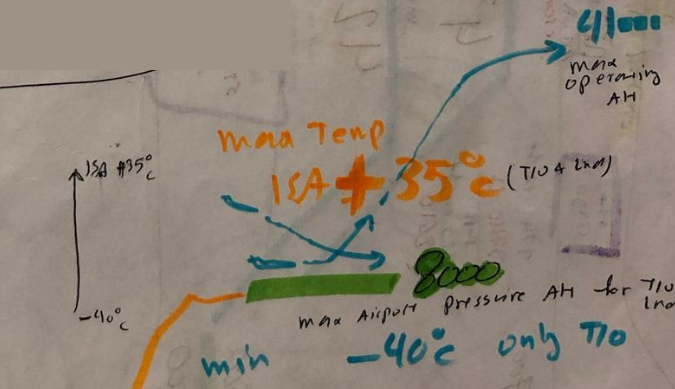 41000
max
operating
Alt
max Temp
ISA +35°C
ISA +35°C (T/O & Lnd)
8000
max Airport pressure Alt for T/O
Lnd
-40°C
min -40°C only T/O